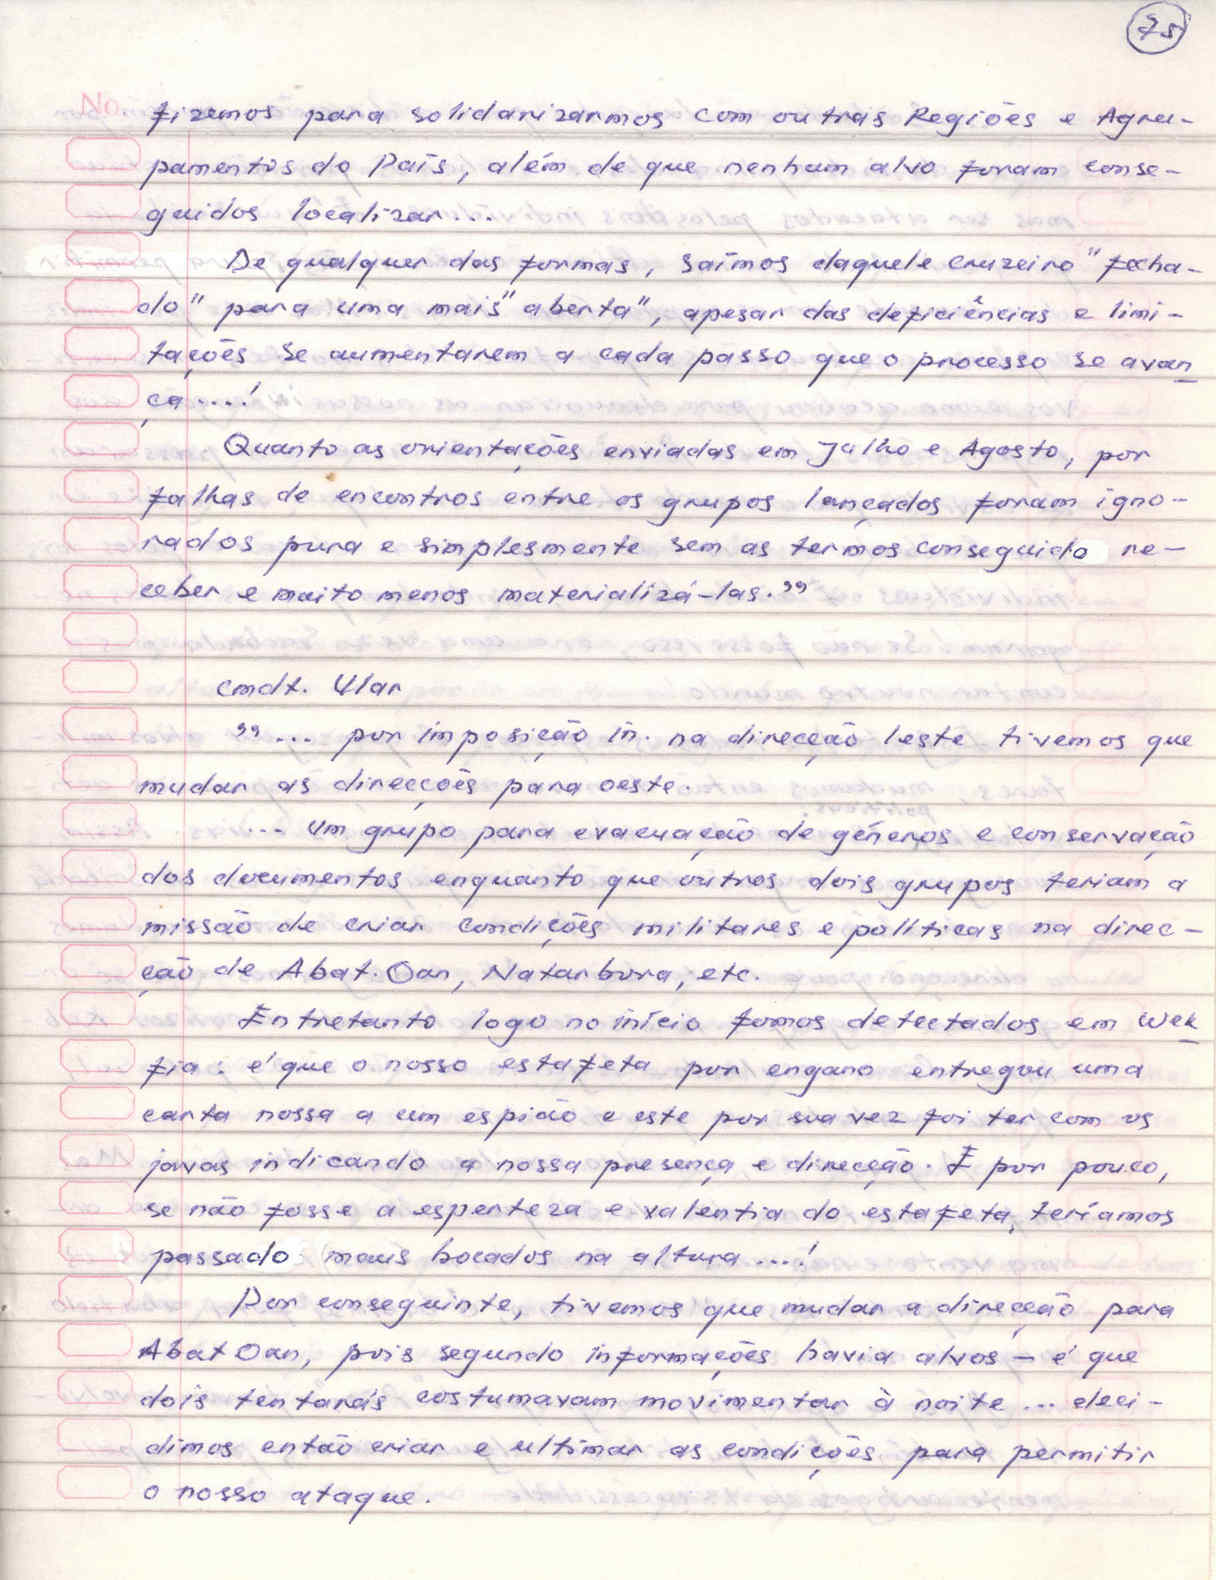 75
No.
fizemos para solidarizarmos com outras Regiões e Agru-
pamentos do País, além de que nenhum alvo foram conse-
guidos localizar...
De qualquer das formas, saímos daquele cruzeiro "fecha-
do" para uma mais "aberta", apesar das deficiências e limi-
tações se aumentarem a cada passo que o processo se avan
ça....!
Quanto as orientações enviadas em Julho e Agosto, por
falhas de encontros entre os grupos lançados foram igno-
rados pura e simplesmente sem as termos conseguido re-
ceber e muito menos materializá-las."
Cmdt. Ular
"... por imposição in. na direcção leste tivemos que
mudar as direcções para oeste.
... Um grupo para evacuação de géneros e conservação
dos documentos enquanto que outros dois grupos teriam a
missão de criar condições militares e políticas na direc-
ção de Abat. Oan, Natarbora, etc.
Entretanto logo no início fomos detectados em Wek
fia: é que o nosso estafeta por engano entregou uma
carta nossa a um espião e este por sua vez foi ter com os
javas indicando a nossa presença e direcção. E por pouco,
se não fosse a esperteza e valentia do estafeta, teríamos
passado maus bocados na altura...!
Por conseguinte, tivemos que mudar a direcção para
Abat Oan, pois segundo informações havia alvos - é que
dois tentarás costumavam movimentar à noite... deci-
dimos então criar e ultimar as condições para permitir
o nosso ataque.